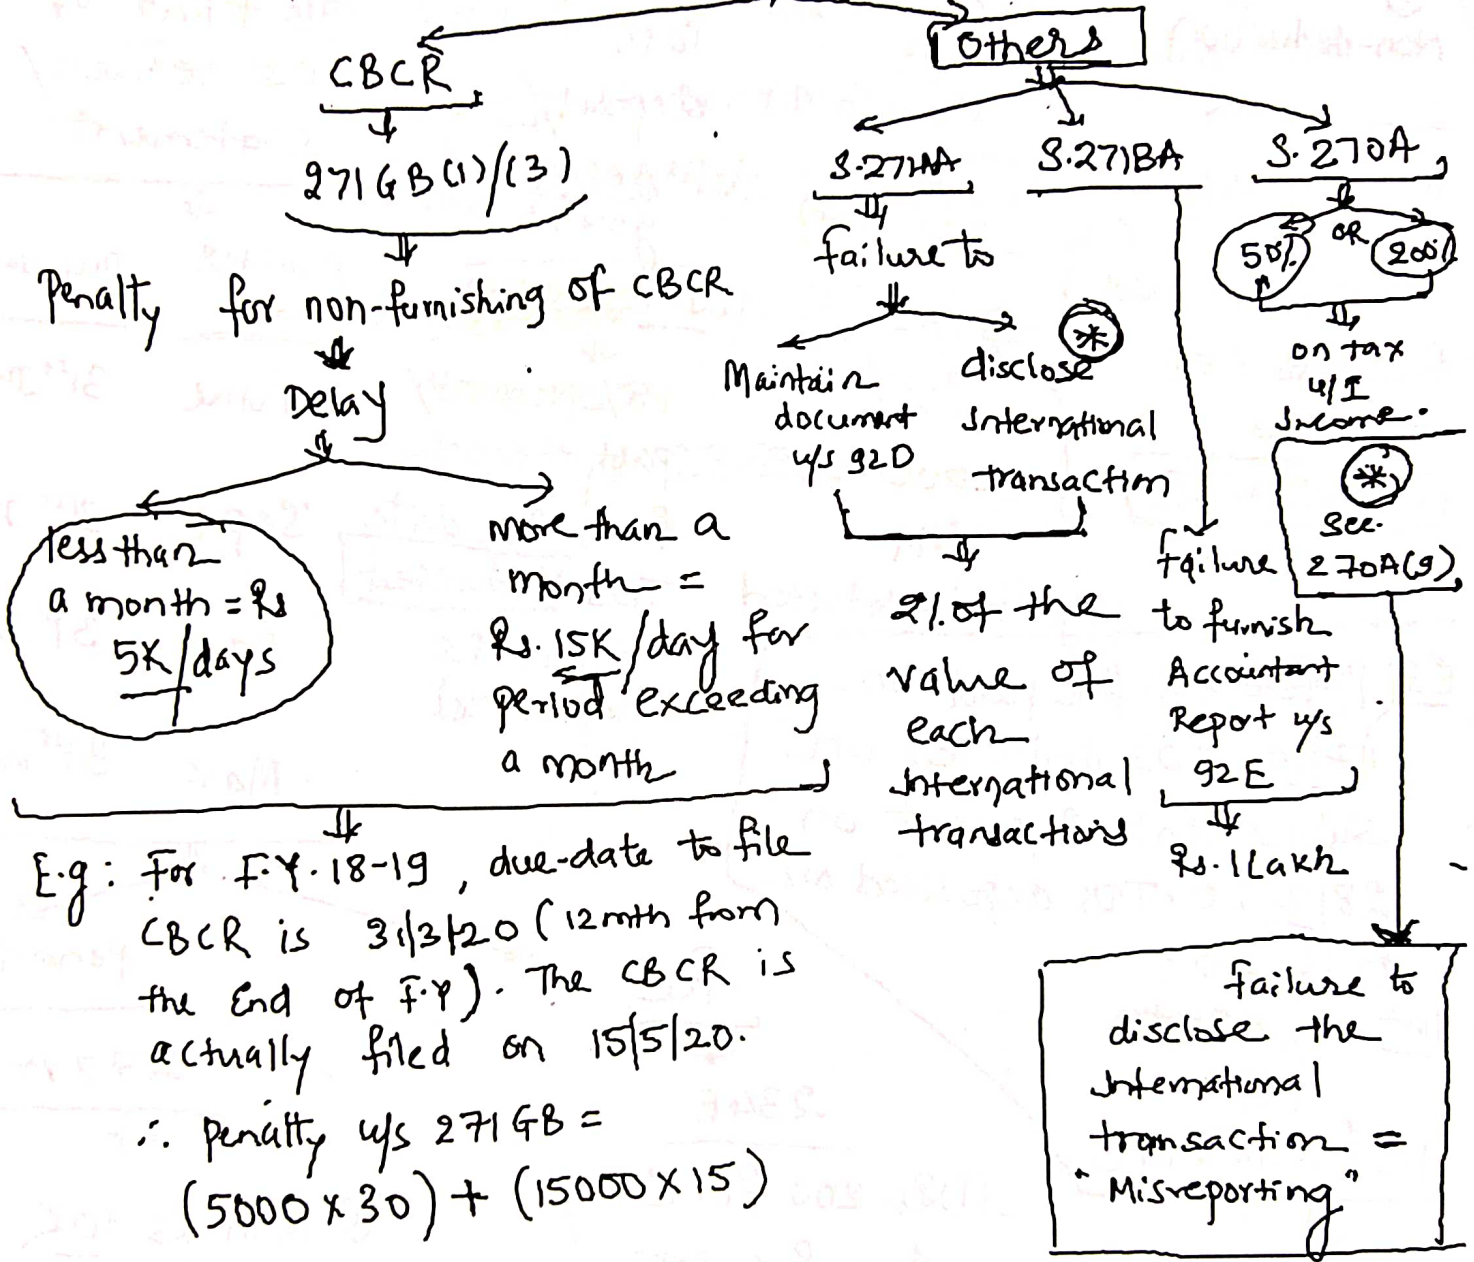 CBCR
271GB(1)/(3)
Penalty for non-furnishing of CBCR
Delay
less than
a month = Rs
5K/days
more than a
month =
Rs. 15K/day for
period exceeding
a month
E.g: For F.Y. 18-19, due-date to file
CBCR is 31/3/20 (12 mth from
the End of F.Y). The CBCR is
actually filed on 15/5/20.
∴ penalty u/s 271GB =
(5000 x 30) + (15000 x 15)
Others
S.271AA
failure to
Maintain
document
u/s 92D
*
disclose
International
transaction
2% of the
value of
each
International
transactions
S.271BA
failure
to furnish
Accountant
Report u/s
92E
Rs. 1 Lakh
S. 270A,
50% OR 200%
on tax
u/I
Income.
*
See.
270A(9)
Failure to
disclose the
International
transaction =
"Misreporting"